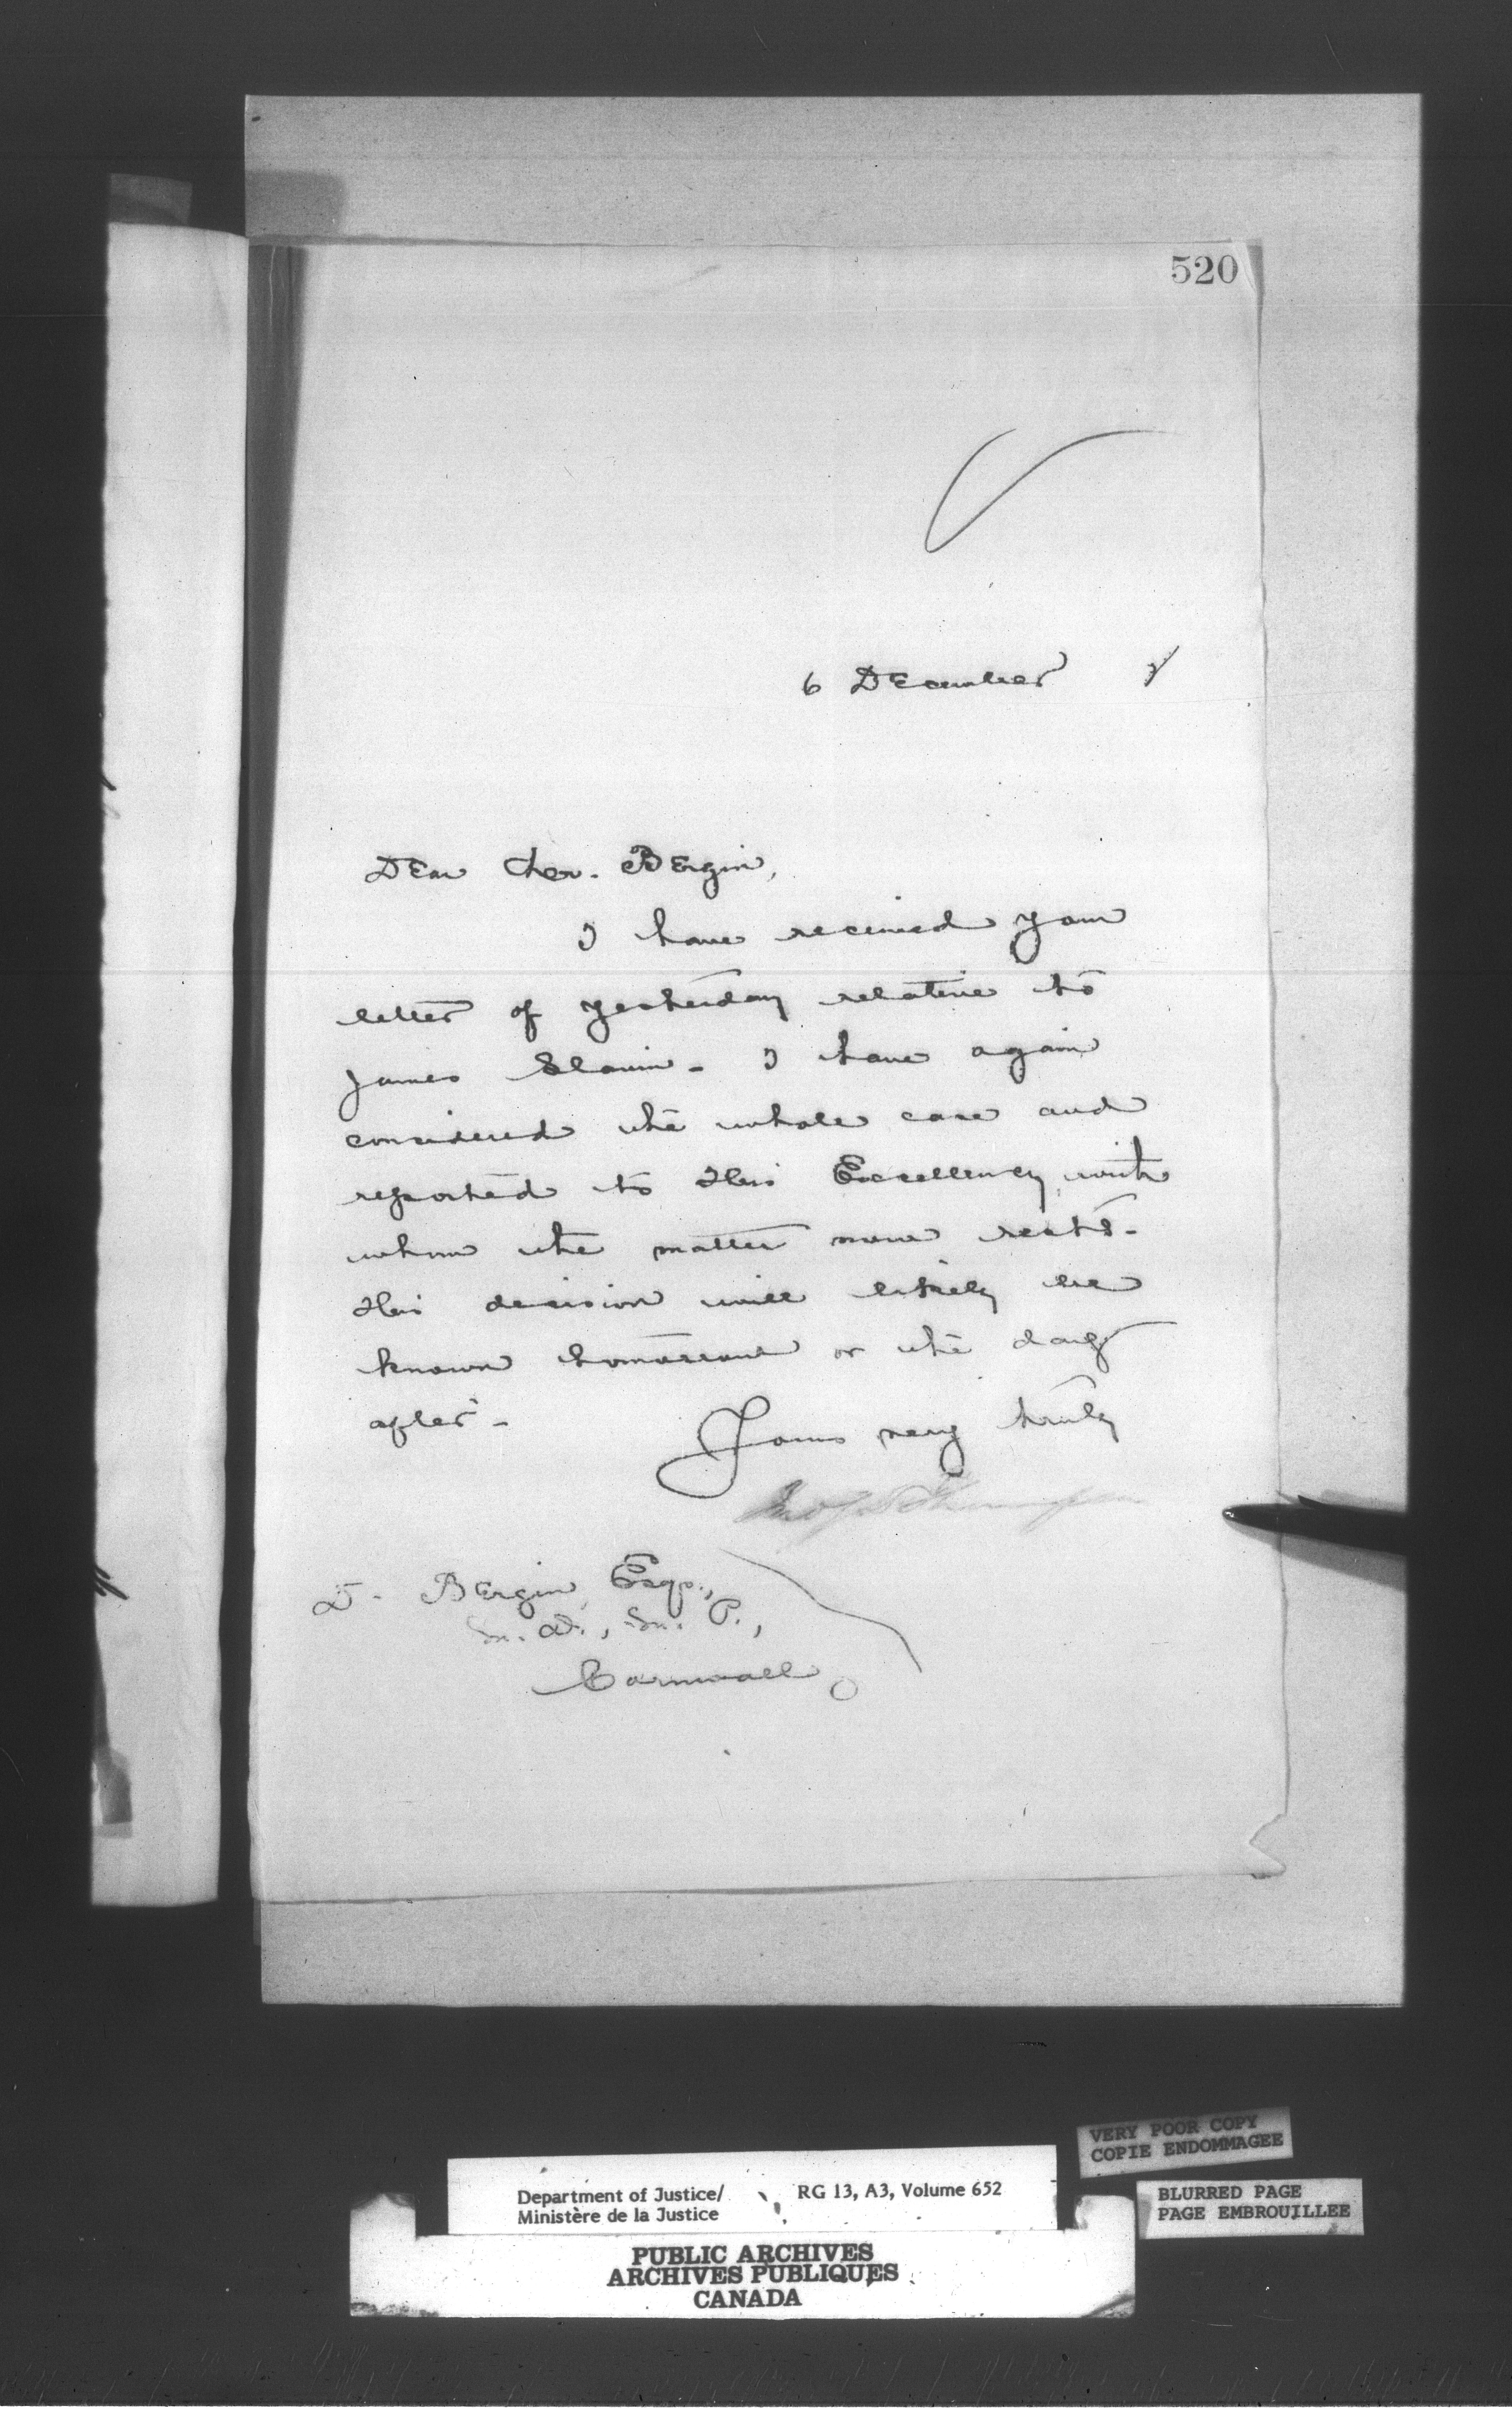 520
6 December
Dear Bergin,
I have received your
letter of yesterday relative to
James Slavin - I have again
considered the whole case and
reported to His Excellency, with
whom the matter now rests -
His decision will likely be
known tomorrow or the day
after -
Yours very truly
Jno S D Thompson
D. Bergin, Esqr.,
M. D., M. P.,
Cornwall
VERY POOR COPY
COPIE ENDOMMAGEE
Department of Justice/ RG 13, A3, Volume 652
Ministère de la Justice
BLURRED PAGE
PAGE EMBROUILLEE
PUBLIC ARCHIVES
ARCHIVES PUBLIQUES
CANADA